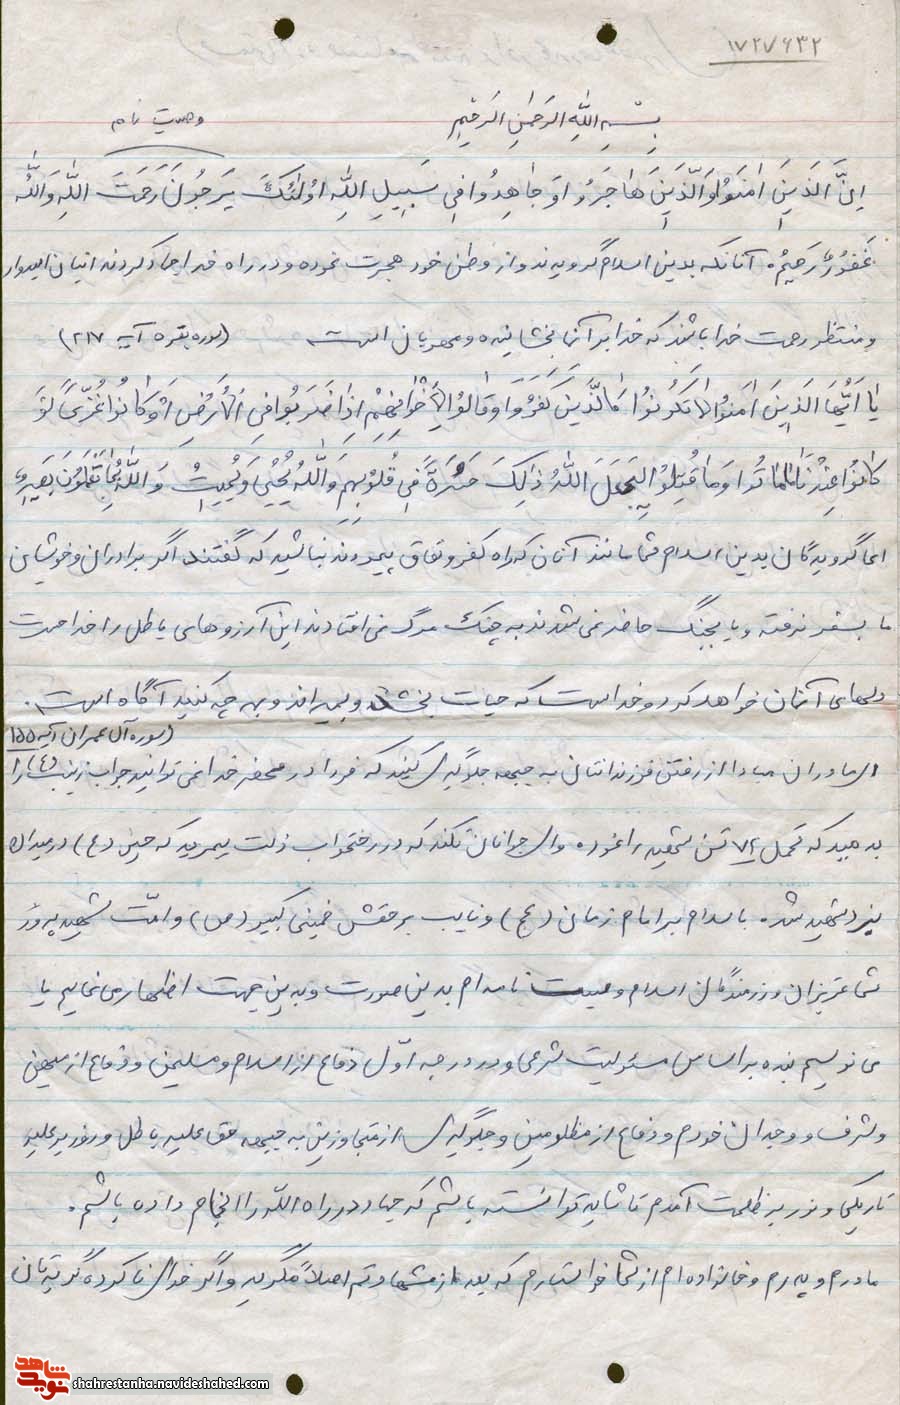 ۱۷۲۷۶۳۲
بِسْمِ اللّهِ الرَحْمنِ الرَحیمِ
وصیت نامه
اِنَّ الَذینَ امَنَوُا وَالَّذینَ هاجَرَوُ اوَ جاهِدُوا فی سَبِیلِ اللّهِ اوُلئکَ یَرجُونَ رَحَمتَ اللّهِ وَاللّهُ
غَفُورُ رَحیمُ. آنانکه بدین اسلام گرویدند و از وطن خود هجرت نموده و در راه خدا جهاد کردند اینان امیدوار
و منتظر رحمت خدا باشند که خدا بر آنها بخشاینده و مهربان است (سوره بقره آیه ۲۱۷)
یا اَیُّهَا الَذینَ امَنوُا لا تَکوُنوُا کَالَّذینَ کَفَروُا وَقالوُا لِاَخْوانِهِمْ اِذا ضَرَبوُا فیِ الْاَرْضِ اَوْ کانوُا غُزّیً لَوْ
کانوُا عِنْدَنا ماماتوُا وَ ما قُتِلوُا لِیَجعَلَ اللّهُ ذلِکَ حَسْرَةً فی قُلوُبِهِم وَاللّهُ یُحْیی وَ یُمیتُ وَ اللّهُ بِما تَعْمَلوُنَ بَصیرُ
ایها گرویدگان بدین اسلام شما مانند آنان که راه کفر و نفاق پیمودند نباشید که گفتند اگر برادران و خویشان
ما بسفر نرفته و یا بجنگ حاضر نمی شدند به چنگ مرگ نمی افتادند این آرزوهای باطل را خدا حسرت
دلهای آنان خواهد کرد و خداست که حیات بخشد و بمیراند و به هر چه کنید آگاه است.
(سوره آل عمران آیه ۱۵۵)
ای مادران مبادا از رفتن فرزندانتان به جبهه جلوگیری کنید که فردا در محضر خدا نمی توانید جواب زینب (ع) را
بدهید که تحمل ۷۲ تن شهید را نموده و ای جوانان نکند که در رختخواب ذلت بمیرید که حسین (ع) در میدان
نبرد شهید شد. با سلام بر امام زمان (عج) و نایب بر حقش خمینی کبیر (ص) و امّت شهید پرور
شما عزیزان و رزمندگان اسلام وصیت نامه ام بدین صورت و بدین جهت اظهار می نمایم یا
می نویسم بنده بر اساس مسئولیت شرعی و در درجه اوّل دفاع از اسلام و مسلمین و دفاع از میهن
و شرف و وجدان خودم و دفاع از مظلومین و جلوگیری از متجاوزین به جبهه حق علیه باطل و نور بر علیه
تاریکی و نور بر ظلمت آمدم تا شاید توانسته باشم که جهاد در راه اللّه را انجام داده باشم.
مادرم و پدرم و خانواده ام از شما خواستارم که بعد از شهادتم اصلاً نگریید و اگر خدای نا کرده گریه تان
شاهد
نوید
shahrestanha.navideshahed.com